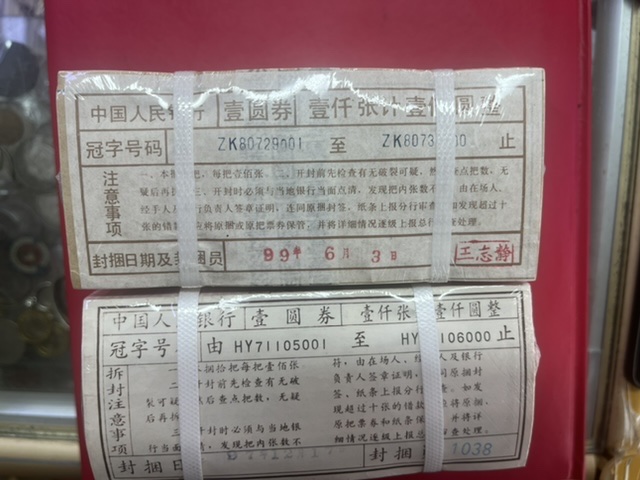 中国人民银行 壹圆券 壹仟张计壹仟圆整
冠字号码 ZK80729001 至 ZK8073 00 止
注意事项
一、本 把，每把壹佰张、二、开封前先检查有无破裂可疑，然 查点把数，无
疑后再拆 三、开封时必须与当地银行当面点清，发现把内张数不 由在场人、
经手人及 行负责人签章证明，连同原捆封签、纸条上报分行审查 如发现超过十
张的错款 应将原捆或原把票券保管，并将详细情况逐级上报总行 处理。
封捆日期及封捆员 99年 6月 3日 王志静
中国人 银行 壹圆券 壹仟张 壹仟圆整
冠字号 由 HY71105001 至 HY 106000 止
拆封注意事项
捆拾把每把壹佰张
二 封前先检查有无破
裂可疑 后查点把数，无疑
后再拆
三 开封时必须与当地银
行当面 ，发现把内张数不
符，由在场人、经 人及银行
负责人签章证明， 同原捆封
签、纸条上报分行 。如发
现超过十张的错款 将原捆、
原把票券和纸条保 并将详
细情况逐级上报总 查处理。
封捆日 封捆 1038